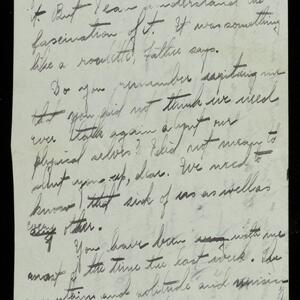 it. But I can understand the
fascination of it. It was something
like a roulette, Lattie says.
Do you remember writing me
that you did not think we need
ever talk again about our
physical selves? I did not mean to
shut you up, dear. We need to
know that side of us as well as
every other.
You have been with me
most of the time the last week. The
and solitude and